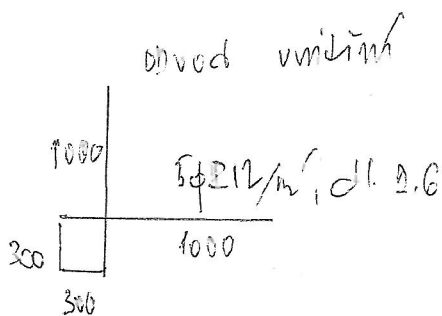 obvod vnitřní
1000
5ϕE12/m', dl. 2.6
1000
300
300